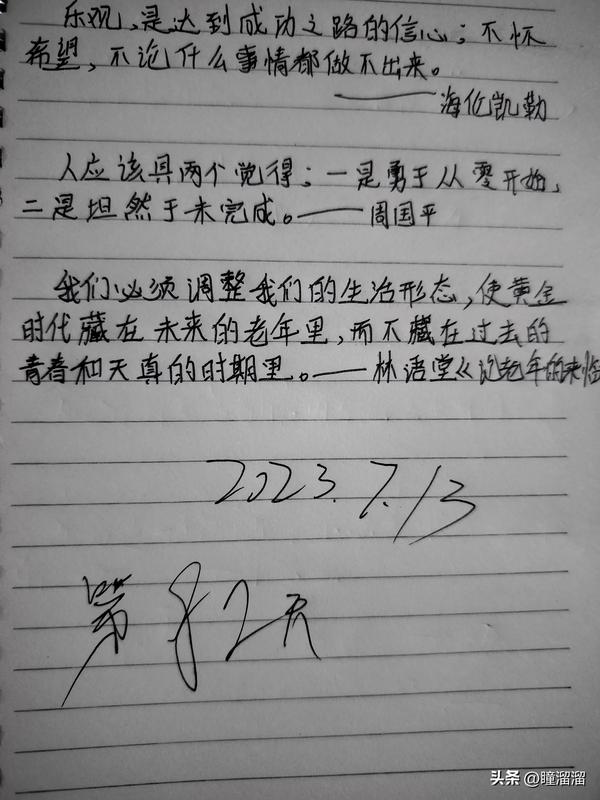 乐观,是达到成功之路的信心;不怀
希望,不论什么事情都做不出来。
——海伦凯勒
人应该具两个觉得;一是勇于从零开始,
二是坦然于未完成。——周国平
我们必须调整我们的生活形态,使黄金
时代藏在未来的老年里,而不藏在过去的
青春和天真的时期里。——林语堂《论老年的来临
2023.7.13
第82天
头条 @瞳溜溜